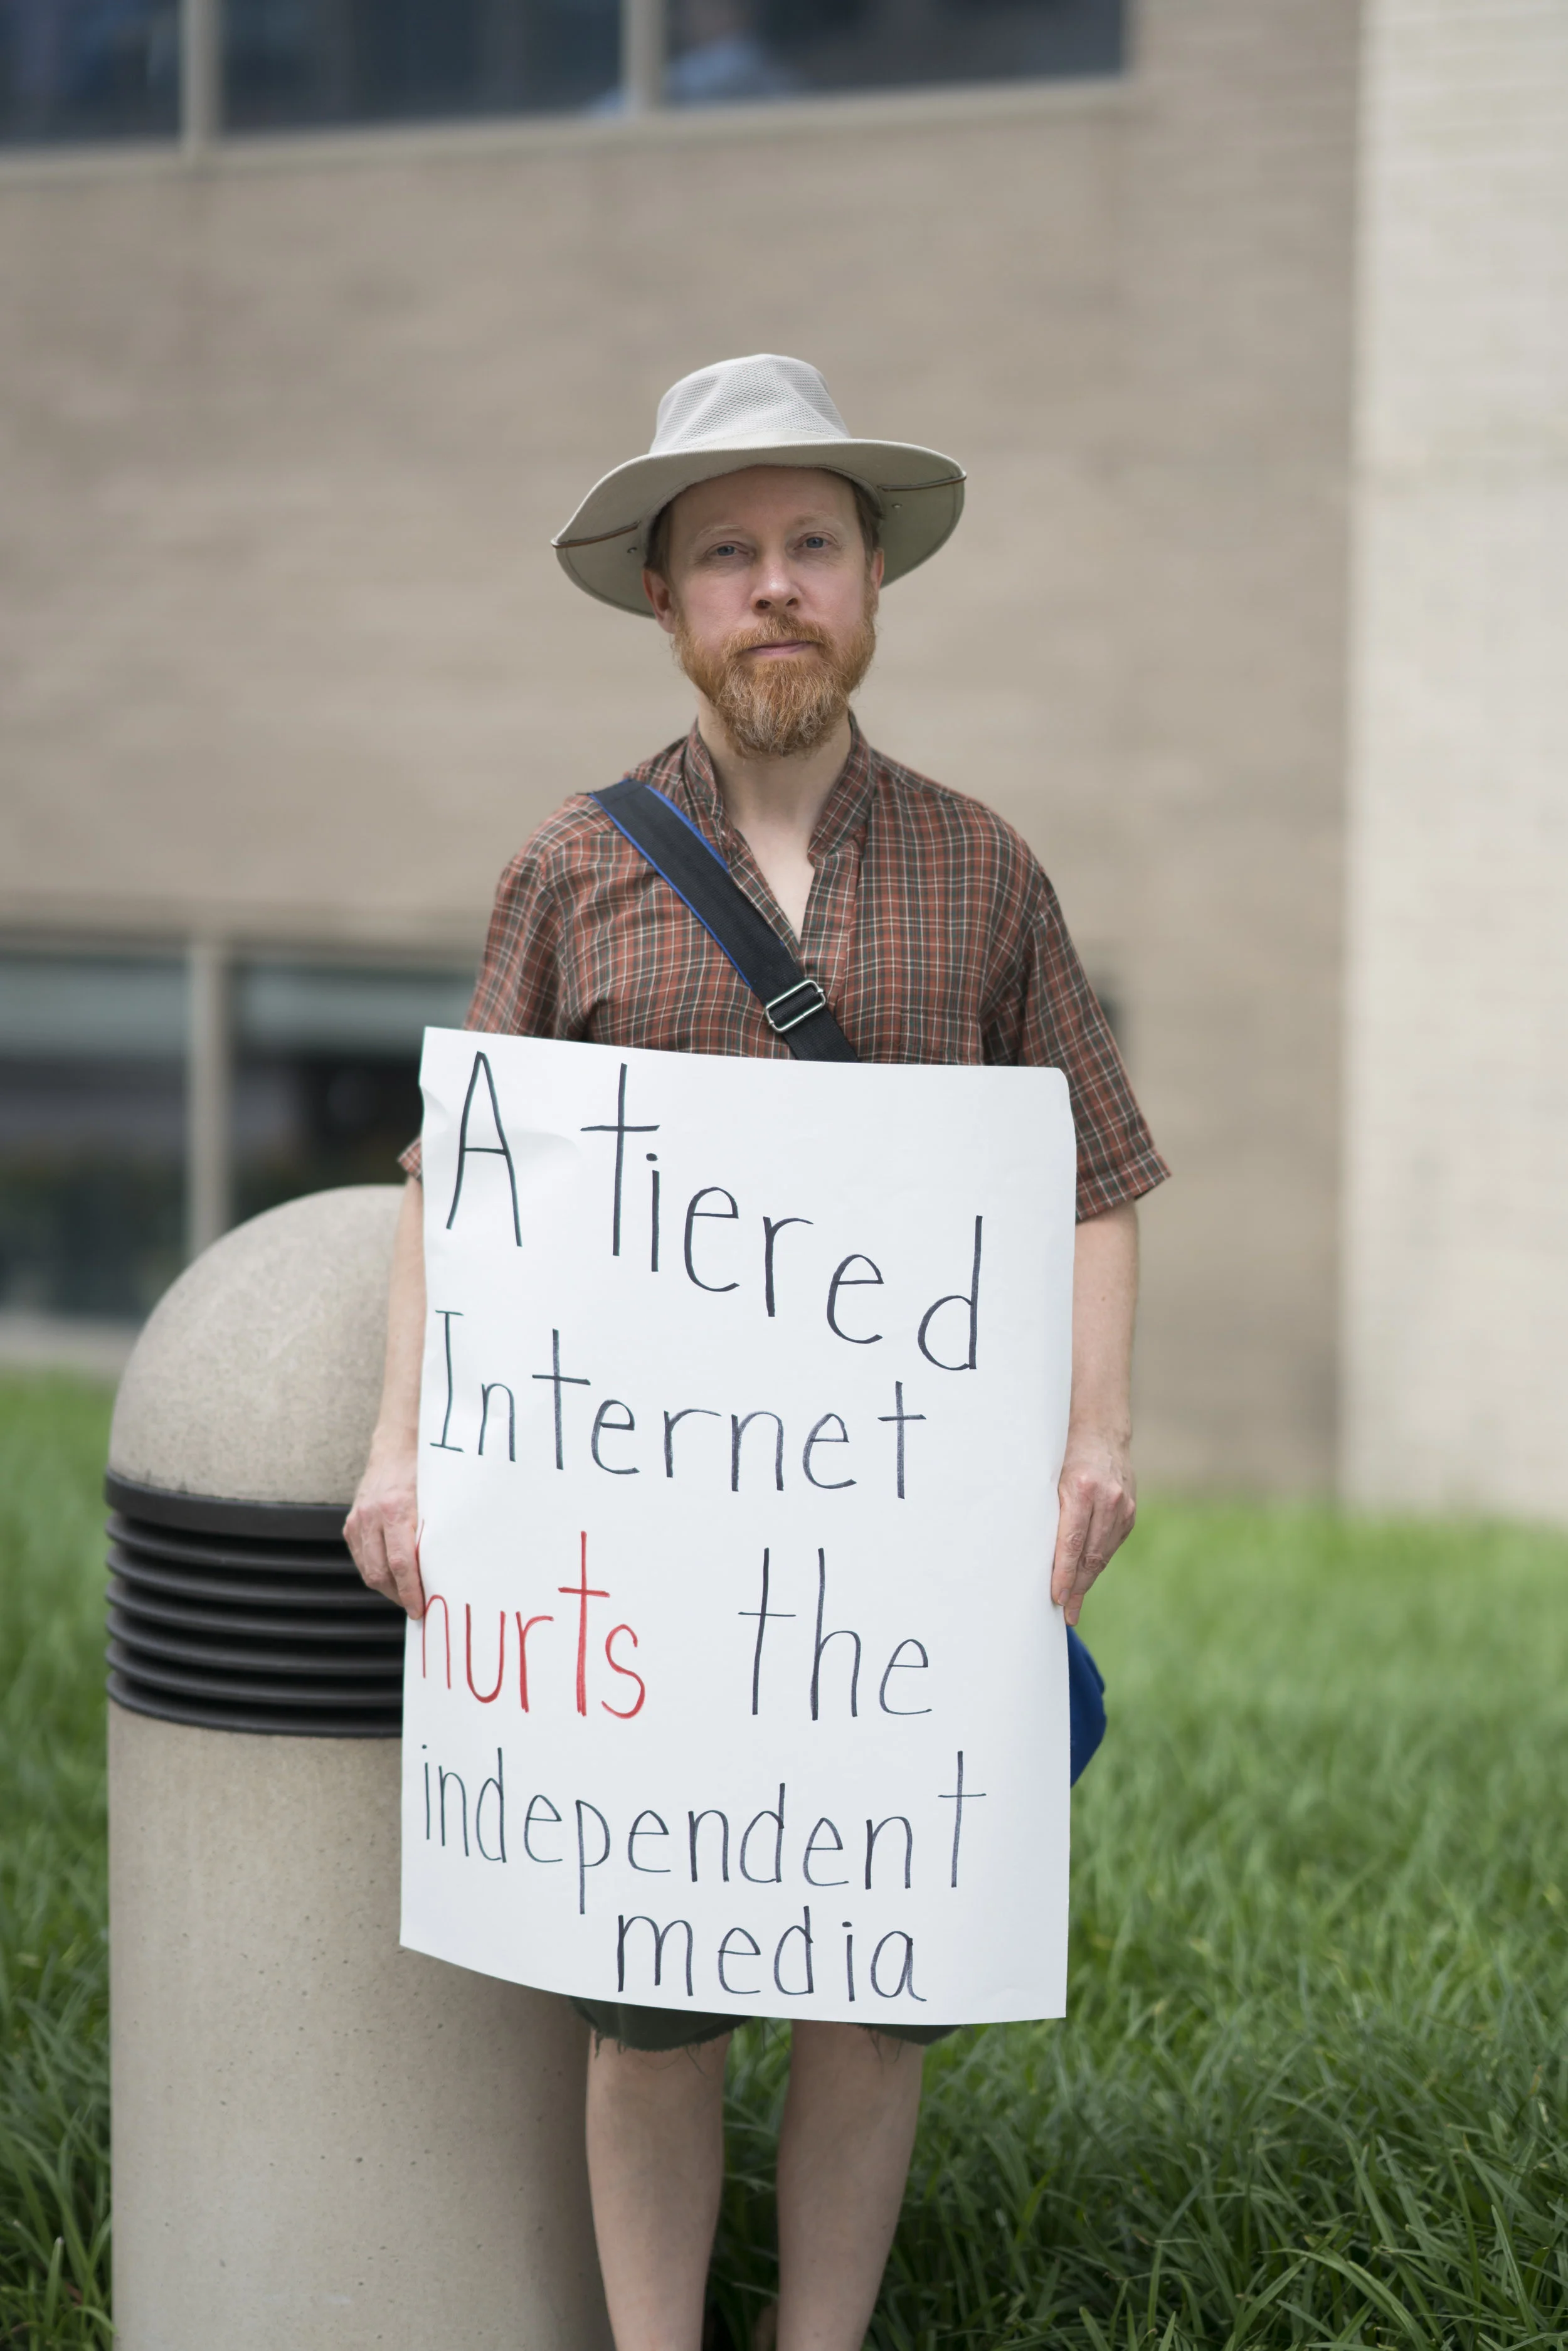 A tiered
Internet
hurts the
independent
media